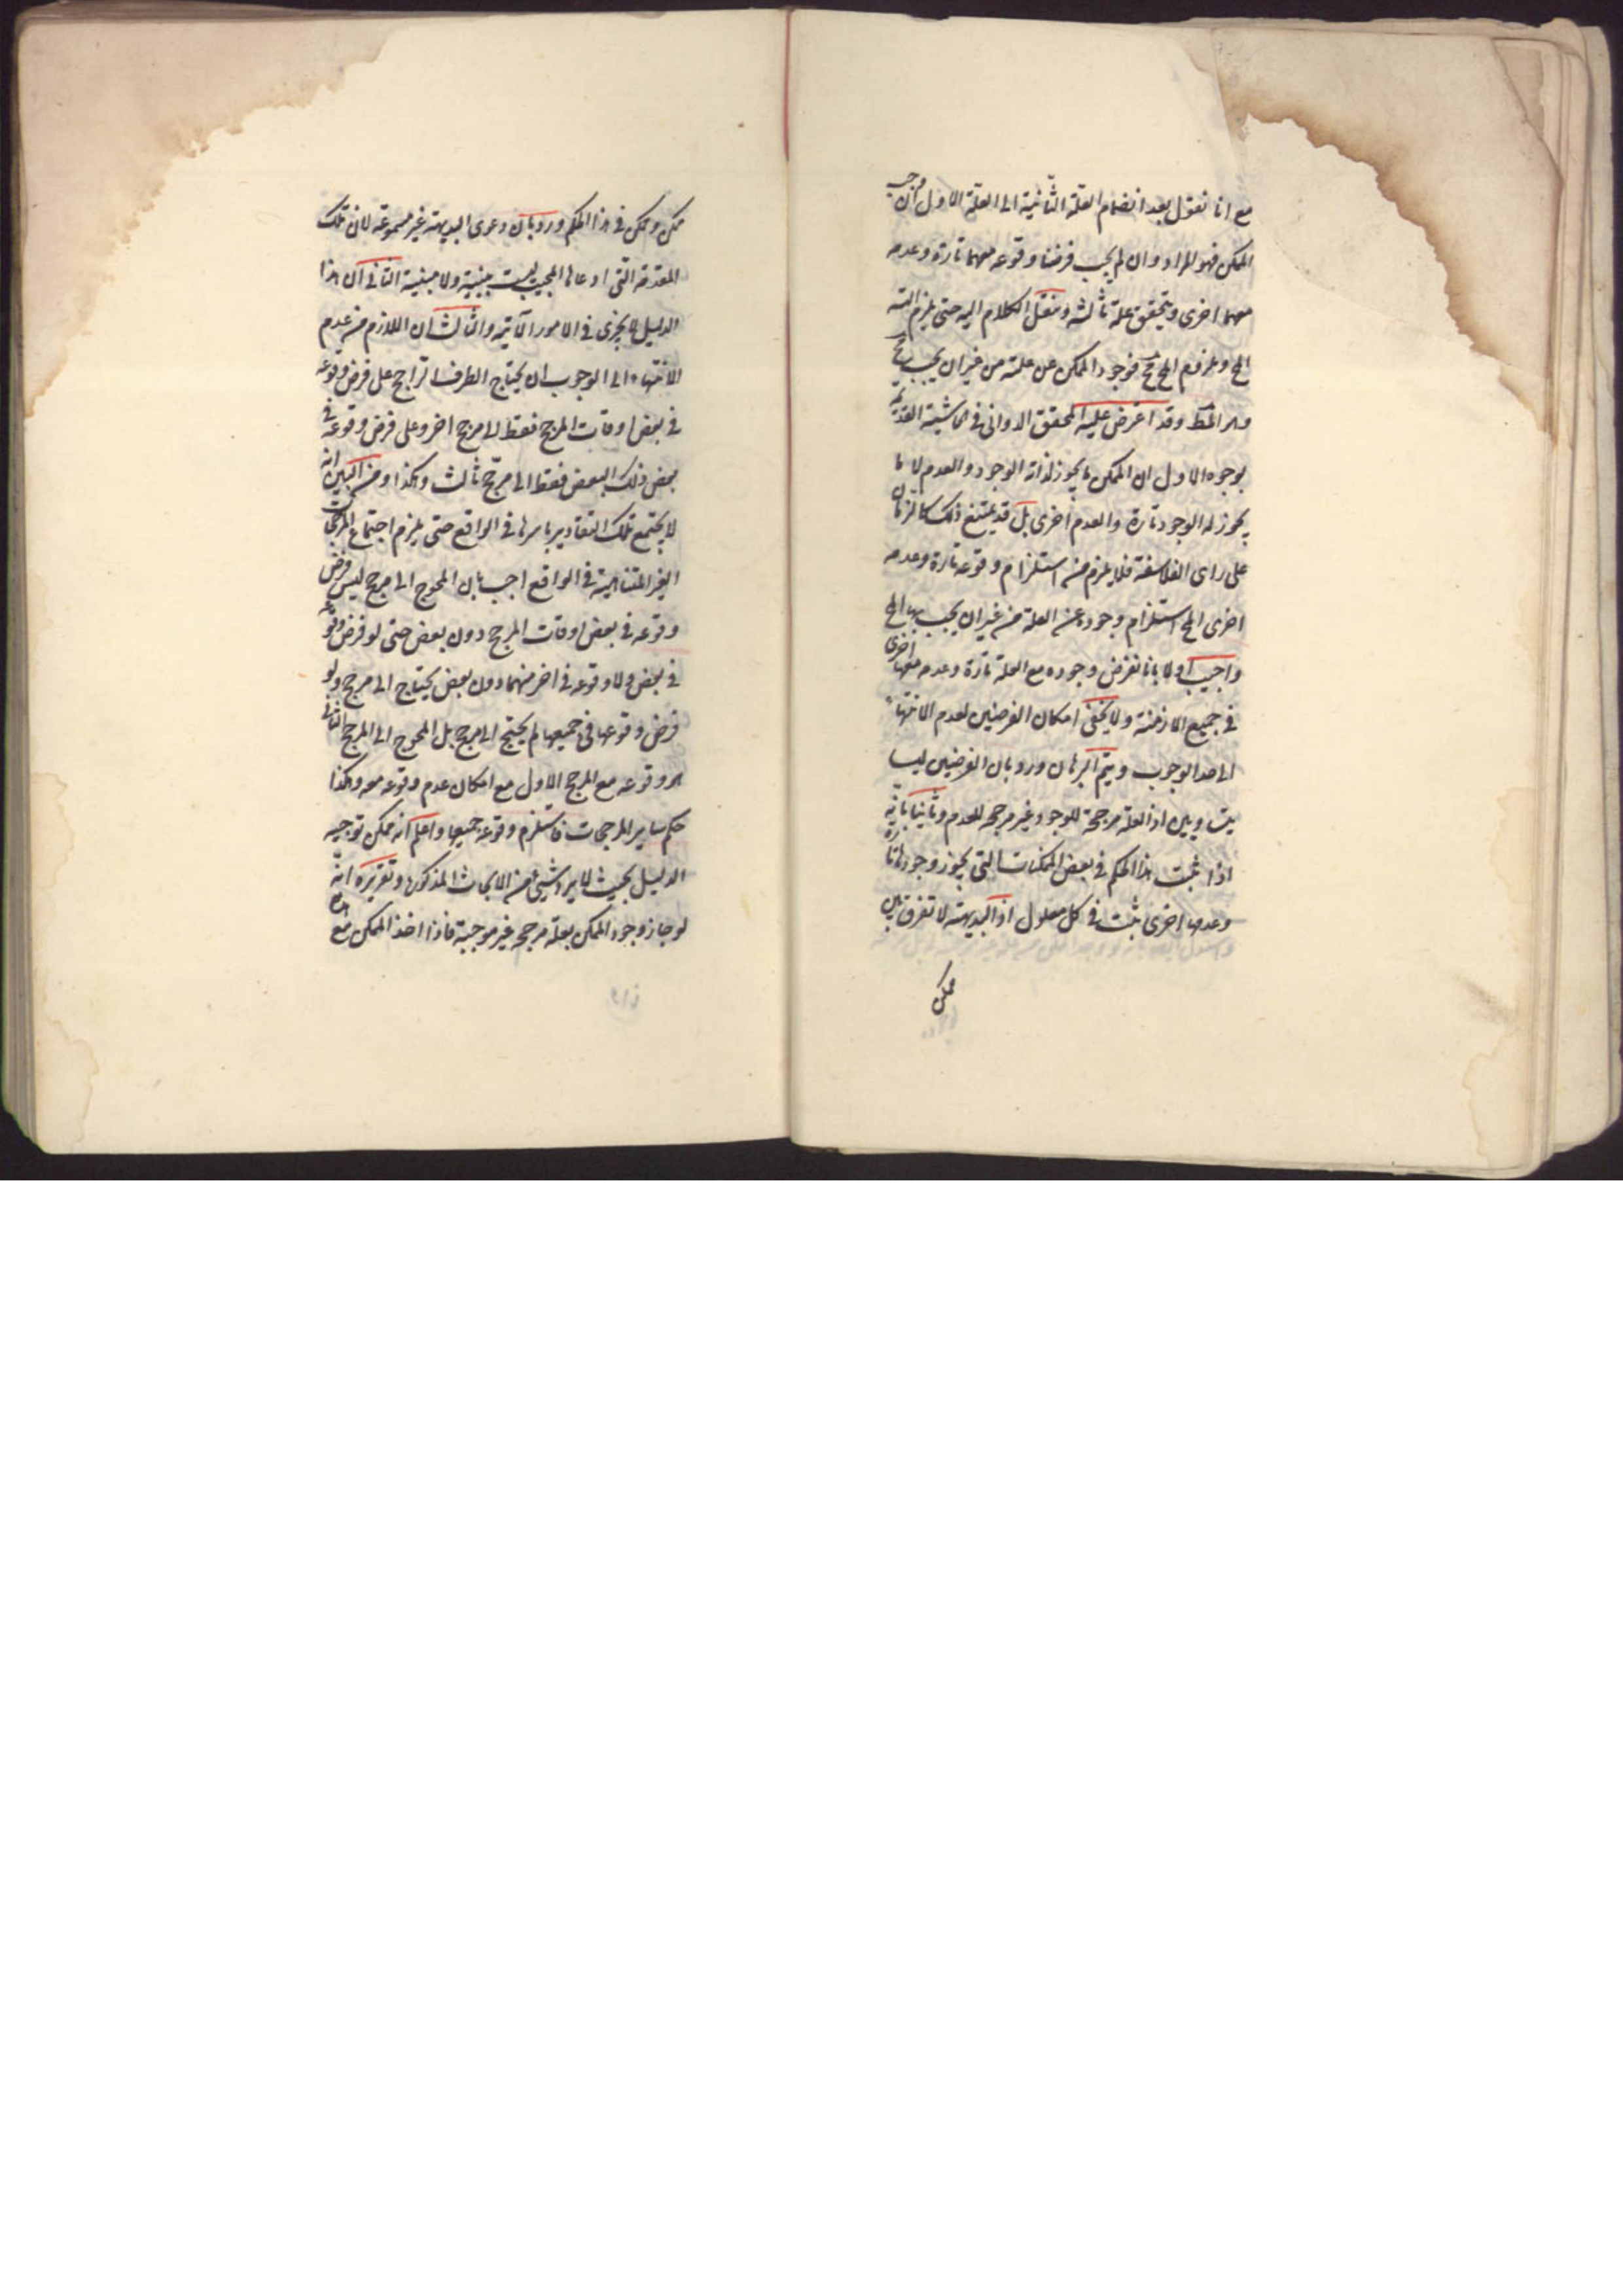 مع انا نقول بعد انضمام العلة الثانية الى العلة الاولى ان وجب
الممكن فهو المراد وان لم يجب فرضنا وقوعه معهما تارة وعدمه
معهما اخرى ويتحقق علة ثالثة وننقل الكلام اليه حتى يلزم التسـ
المح وملزوم المح مح فوجود الممكن عن علته من غير ان يجب مح
وهو المط وقد اعترض عليه المحقق الدواني في الحاشية القديمة
بوجوه الاول ان الممكن ما يجوز لذاته الوجود والعدم لا ما
يجوز له الوجود تارة والعدم اخرى بل قد يمتنع ذلك كالزمان
على راى الفلاسفة فلا يلزم منه استلزام وقوعه تارة وعدمه
اخرى المح استلزام وجوده عن العلة من غير ان يجب بها المح
واجيب اولا بانا نفرض وجوده مع العلة تارة وعدمه معها اخرى
في جميع الازمنة ولا يخفى امكان الفرضين لعدم الانتهاء
الى حد الوجوب ويتم البرهان ورد بان الفرضين ليسا
بمتساويين اذ العلة مرجحة للوجود غير مرجحة للعدم وثانيا بانه
اذا ثبت هذا الحكم في بعض الممكنات التى يجوز وجودها تارة
وعدمها اخرى ثبت في كل معلول اذ البديهة لا تفرق بين
ممكن
ممكن وممكن في هذا الحكم ورد بان دعوى البديهة غير مسموعة لان تلك
المقدمة التى ادعاها المجيب ليست بينية ولا مبنية الثاني ان هذا
الدليل لا يجرى في الامور الآنية والثالث ان اللازم من عدم
الانتهاء الى الوجوب ان يحتاج الطرف الراجح على فرض وقوعه
في بعض اوقات المرجح فقط الى مرجح اخر وعلى فرض وقوعه في
بعض ذلك البعض فقط الى مرجح ثالث وهكذا ومن البين انه
لا يجتمع تلك التقادير باسرها في الواقع حتى يلزم اجتماع المرجحات
الغير المتناهية في الواقع اجيب بان المحوج الى مرجح ليس فرض
وقوعه في بعض اوقات المرجح دون بعض حتى لو فرض وقوعه
في بعض ولا وقوعه في اخر منهما دون بعض يحتاج الى مرجح ولو
فرض وقوعها في جميعها لم يحتج الى مرجح بل المحوج الى المرجح الثاني
هو وقوعه مع المرجح الاول مع امكان عدم وقوعه معه وهكذا
حكم ساير المرجحات فاستلزم وقوعه جميعها واعلم انه ممكن توجيه
الدليل بحيث لا يرد شيئ من الابحاث المذكورة وتقريره انه
لو جاز وجود الممكن بعلة مرجحة غير موجبة فاذا اخذ الممكن مع